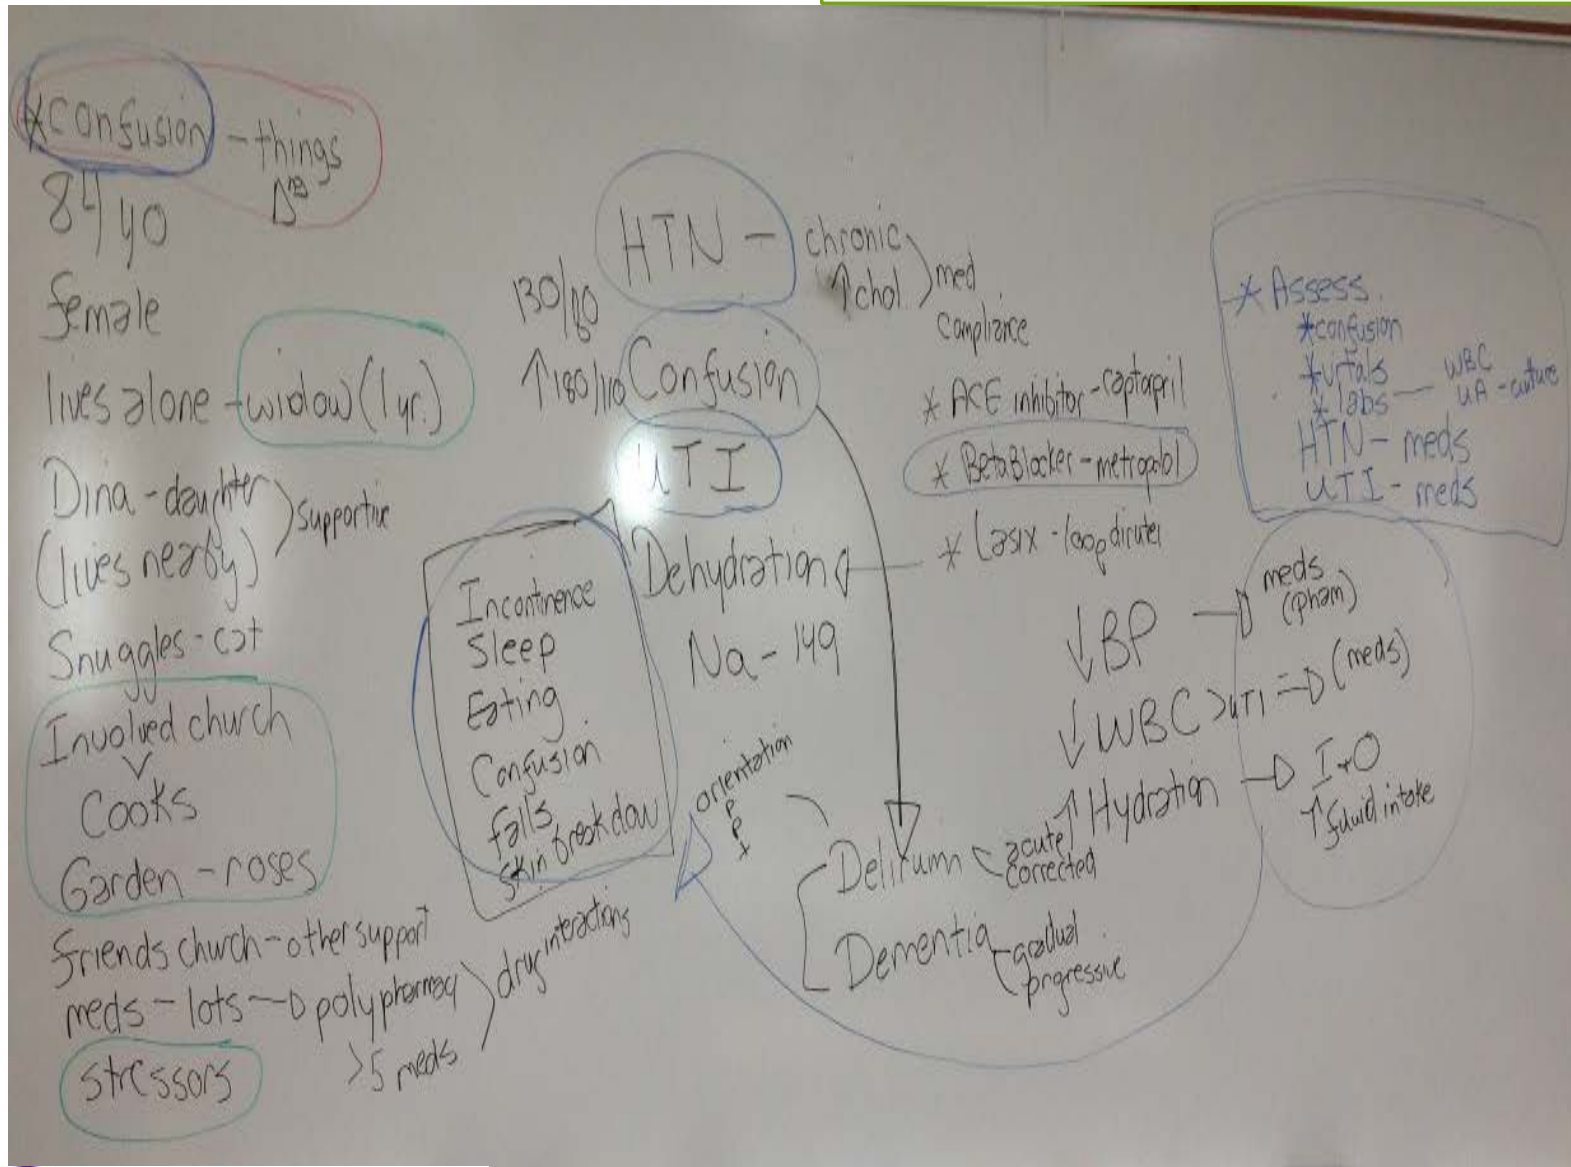 *confusion - things
84 yo
female
lives alone - widow (1 yr.)
Dina - daughter
(lives nearby)
supportive
Snuggles - cat
Involved church
Cooks
Garden - roses
friends church - other support
meds - lots → polypharmacy
>5 meds
drug interactions
stressors
HTN -
chronic
↑chol.
med
compliance
130/80
↑180/110
Confusion
UTI
Dehydration
Na - 149
Incontinence
Sleep
Eating
Confusion
falls
skin breakdow
* ACE inhibitor - captapril
* BetaBlocker - metropolol
* Lasix - loop
↓ BP → meds
(pham)
↓ WBC > UTI → (meds)
↑ Hydration → I+O
↑ fluid intake
orientation
P
P
T
Delirum
acute
corrected
Dementia
gradual
progressive
* Assess.
*confusion
*vitals
*labs — WBC
UA - cuture
HTN - meds
UTI - meds